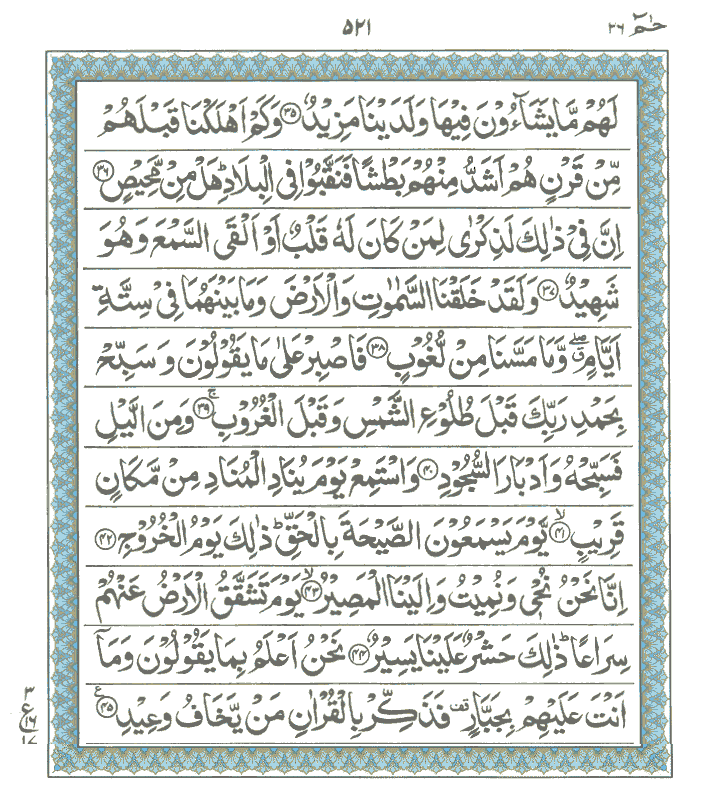 حٰمٓ ۲۶
۵۲۱
لَهُمْ مَّا يَشَآءُوْنَ فِيْهَا وَلَدَيْنَا مَزِيْدٌ ۝۳۵ وَكَمْ اَهْلَكْنَا قَبْلَهُمْ
مِّنْ قَرْنٍ هُمْ اَشَدُّ مِنْهُمْ بَطْشًا فَنَقَّبُوْا فِى الْبِلَادِ ؕ هَلْ مِنْ مَّحِيْصٍ ۝۳۶
اِنَّ فِىْ ذٰلِكَ لَذِكْرٰى لِمَنْ كَانَ لَهٗ قَلْبٌ اَوْ اَلْقَى السَّمْعَ وَهُوَ
شَهِيْدٌ ۝۳۷ وَلَقَدْ خَلَقْنَا السَّمٰوٰتِ وَالْاَرْضَ وَمَا بَيْنَهُمَا فِىْ سِتَّةِ
اَيَّامٍ ۖ وَّمَا مَسَّنَا مِنْ لُّغُوْبٍ ۝۳۸ فَاصْبِرْ عَلٰى مَا يَقُوْلُوْنَ وَسَبِّحْ
بِحَمْدِ رَبِّكَ قَبْلَ طُلُوْعِ الشَّمْسِ وَقَبْلَ الْغُرُوْبِ ۚ ۝۳۹ وَمِنَ الَّيْلِ
فَسَبِّحْهُ وَاَدْبَارَ السُّجُوْدِ ۝۴۰ وَاسْتَمِعْ يَوْمَ يُنَادِ الْمُنَادِ مِنْ مَّكَانٍ
قَرِيْبٍ ۙ ۝۴۱ يَّوْمَ يَسْمَعُوْنَ الصَّيْحَةَ بِالْحَقِّ ؕ ذٰلِكَ يَوْمُ الْخُرُوْجِ ۝۴۲
اِنَّا نَحْنُ نُحْىٖ وَنُمِيْتُ وَاِلَيْنَا الْمَصِيْرُ ۙ ۝۴۳ يَوْمَ تَشَقَّقُ الْاَرْضُ عَنْهُمْ
سِرَاعًا ؕ ذٰلِكَ حَشْرٌ عَلَيْنَا يَسِيْرٌ ۝۴۴ نَحْنُ اَعْلَمُ بِمَا يَقُوْلُوْنَ وَمَآ
اَنْتَ عَلَيْهِمْ بِجَبَّارٍ ۟قف فَذَكِّرْ بِالْقُرْاٰنِ مَنْ يَّخَافُ وَعِيْدِ ۝۴۵ ع
۳
ع
۱۶
۱۷